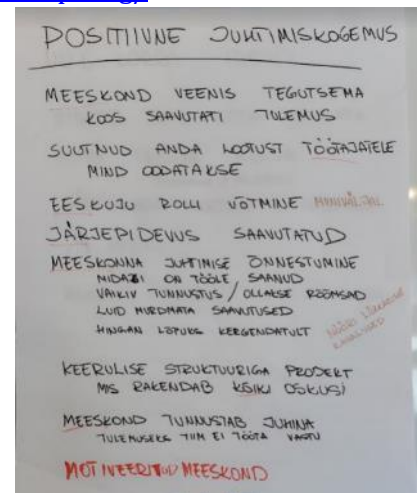 POSITIIVNE JUHTIMISKOGEMUS
MEESKOND VEENIS TEGUTSEMA
KOOS SAAVUTATI TULEMUS
SUUTNUD ANDA LOOTUST TÖÖTAJATELE
MIND OODATAKSE
EESKUJU ROLLI VÕTMINE
JÄRJEPIDEVUS SAAVUTATUD
MEESKONNA JUHTIMISE ÕNNESTUMINE
MIDAGI ON TÖÖLE SAANUD
VAIKIV TUNNUSTUS / OLLAKSE RÕÕMSAD
LUID MURDMATA SAAVUTUSED
HINGAN LÕPUKS KERGENDATULT
KEERULISE STRUKTUURIGA PROJEKT
MIS RAKENDAB KÕIKI OSKUSI
MEESKOND TUNNUSTAB JUHINA
TULEMUSEKS TIIM EI TÖÖTA VASTU
MOTIVEERITUD MEESKOND